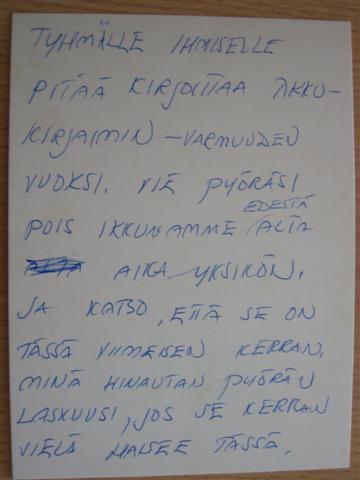 TYHMÄLLE IHMISELLE
PITÄÄ KIRJOITTAA TIKKU-
KIRJAIMIN – VARMUUDEN
VUOKSI. VIE PYÖRÄSI
EDESTÄ
POIS IKKUNAMME / ALTA
AIKA-YKSIKÖN.
JA KATSO, ETTÄ SE ON
TÄSSÄ VIIMEISEN KERRAN.
MINÄ HINAUTAN PYÖRÄN
LASKUUSI, JOS SE KERRAN
VIELÄ HAISEE TÄSSÄ.